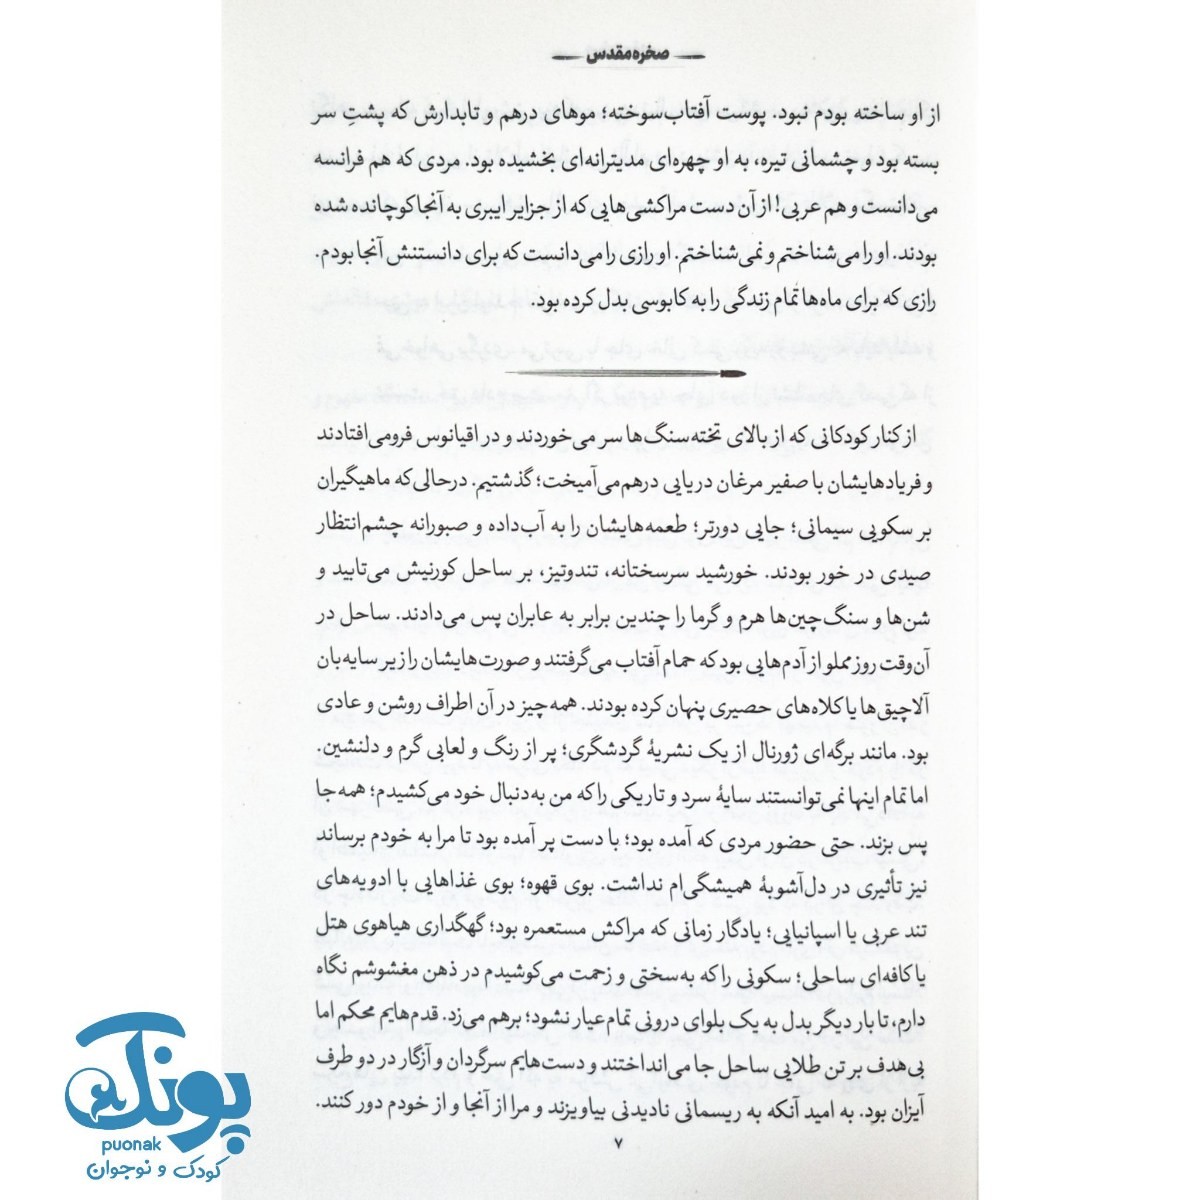 صخره مقدس
از او ساخته بودم نبود. پوست آفتاب‌سوخته؛ موهای درهم و تابدارش که پشتِ سر
بسته بود و چشمانی تیره، به او چهره‌ای مدیترانه‌ای بخشیده بود. مردی که هم فرانسه
می‌دانست و هم عربی! از آن دست مراکشی‌هایی که از جزایر ایبری به آنجا کوچانده شده
بودند. او را می‌شناختم و نمی‌شناختم. او رازی را می‌دانست که برای دانستنش آنجا بودم.
رازی که برای ماه‌ها تمام زندگی را به کابوسی بدل کرده بود.
از کنار کودکانی که از بالای تخته‌سنگ‌ها سر می‌خوردند و در اقیانوس فرومی‌افتادند
و فریادهایشان با صفیر مرغان دریایی درهم‌می‌آمیخت؛ گذشتیم. درحالی‌که ماهیگیران
بر سکویی سیمانی؛ جایی دورتر؛ طعمه‌هایشان را به آب‌داده و صبورانه چشم‌انتظار
صیدی در خور بودند. خورشید سرسختانه، تندوتیز، بر ساحل کورنیش می‌تابید و
شن‌ها و سنگ‌چین‌ها هرم و گرما را چندین برابر به عابران پس می‌دادند. ساحل در
آن‌وقت روز مملو از آدم‌هایی بود که حمام آفتاب می‌گرفتند و صورت‌هایشان را زیر سایه‌بان
آلاچیق‌ها یا کلاه‌های حصیری پنهان کرده بودند. همه‌چیز در آن اطراف روشن و عادی
بود. مانند برگه‌ای ژورنال از یک نشریهٔ گردشگری؛ پر از رنگ و لعابی گرم و دلنشین.
اما تمام اینها نمی‌توانستند سایهٔ سرد و تاریکی را که من به‌دنبال خود می‌کشیدم؛ همه‌جا
پس بزند. حتی حضور مردی که آمده بود؛ با دست پر آمده بود تا مرا به خودم برساند
نیز تأثیری در دل‌آشوبهٔ همیشگی‌ام نداشت. بوی قهوه؛ بوی غذاهایی با ادویه‌های
تند عربی یا اسپانیایی؛ یادگار زمانی که مراکش مستعمره بود؛ گهگداری هیاهوی هتل
یا کافه‌ای ساحلی؛ سکونی را که به‌سختی و زحمت می‌کوشیدم در ذهن مغشوشم نگاه
دارم، تا بار دیگر بدل به یک بلوای درونی تمام‌عیار نشود؛ برهم می‌زد. قدم‌هایم محکم اما
بی‌هدف بر تن طلایی ساحل جا می‌انداختند و دست‌هایم سرگردان و آزگار در دو طرف
آیزان بود. به امید آنکه به ریسمانی نادیدنی بیاویزند و مرا از آنجا و از خودم دور کنند.
۷
پونک
puonak
کودک و نوجوان